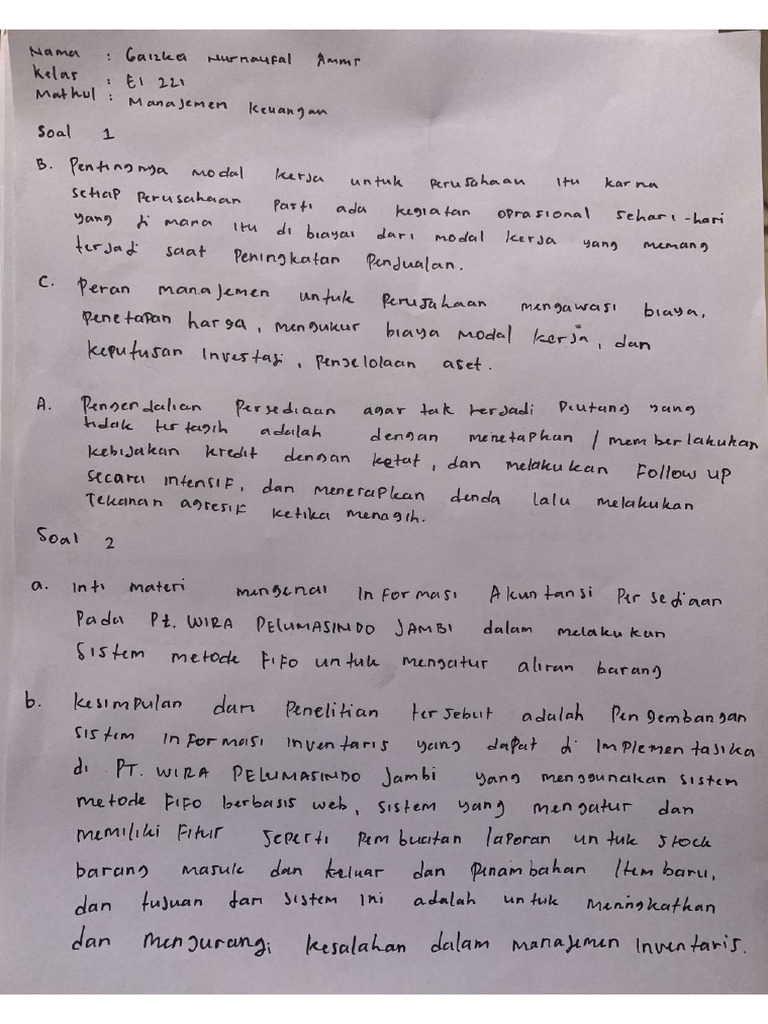 Nama : Gaizka Nurnaufal Ammr
Kelas : EI 221
Matkul : Manajemen Keuangan
Soal 1
B. Pentingnya modal kerja untuk perusahaan itu karna
setiap perusahaan pasti ada kegiatan oprasional sehari-hari
yang di mana itu di biayai dari modal kerja yang memang
terjadi saat peningkatan penjualan.
C. Peran manajemen untuk perusahaan mengawasi biaya,
penetapan harga, mengukur biaya modal kerja, dan
keputusan investasi, pengelolaan aset.
A. Pengendalian persediaan agar tak terjadi piutang yang
tidak tertagih adalah dengan menetapkan / memberlakukan
kebijakan kredit dengan ketat, dan melakukan Follow up
secara intensif, dan menerapkan denda lalu melakukan
Tekanan agresif ketika menagih.
Soal 2
a. Inti materi mengenai Informasi Akuntansi Persediaan
Pada Pt. WIRA PELUMASINDO JAMBI dalam melakukan
Sistem metode FIFO untuk mengatur aliran barang
b. Kesimpulan dari Penelitian tersebut adalah Pengembangan
sistem informasi inventaris yang dapat di Implementasika
di PT. WIRA PELUMASINDO Jambi yang menggunakan sistem
metode FIFO berbasis web, sistem yang mengatur dan
memiliki Fitur seperti pembuatan laporan untuk stock
barang masuk dan keluar dan Penambahan Item baru,
dan tujuan dari sistem ini adalah untuk meningkatkan
dan mengurangi kesalahan dalam manajemen inventaris.